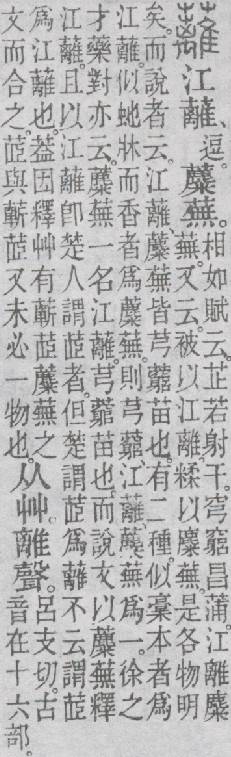 蘺 江蘺、逗。蘪蕪。
相如賦云。芷若射干。穹窮昌蒲。江離麋
蕪。又云。被以江離。糅以麋蕪。是各物明
矣。而說者云。江蘺、蘪蕪皆芎藭苗也。有二種。似稾本者爲
江蘺。似虵牀而香者爲蘪蕪。則芎藭、江蘺、蘪蕪爲一。徐之
才藥對亦云。蘪蕪一名江蘺。芎藭苗也。而說文以蘪蕪釋
江蘺。且以江蘺卽楚人謂茝者。但楚謂茝爲蘺。不云謂茝
爲江蘺也。葢因釋艸有蘄茝蘪蕪之
文而合之。茝與蘄茝又未必一物也。
从艸離聲。
呂支切。古
音在十六部。